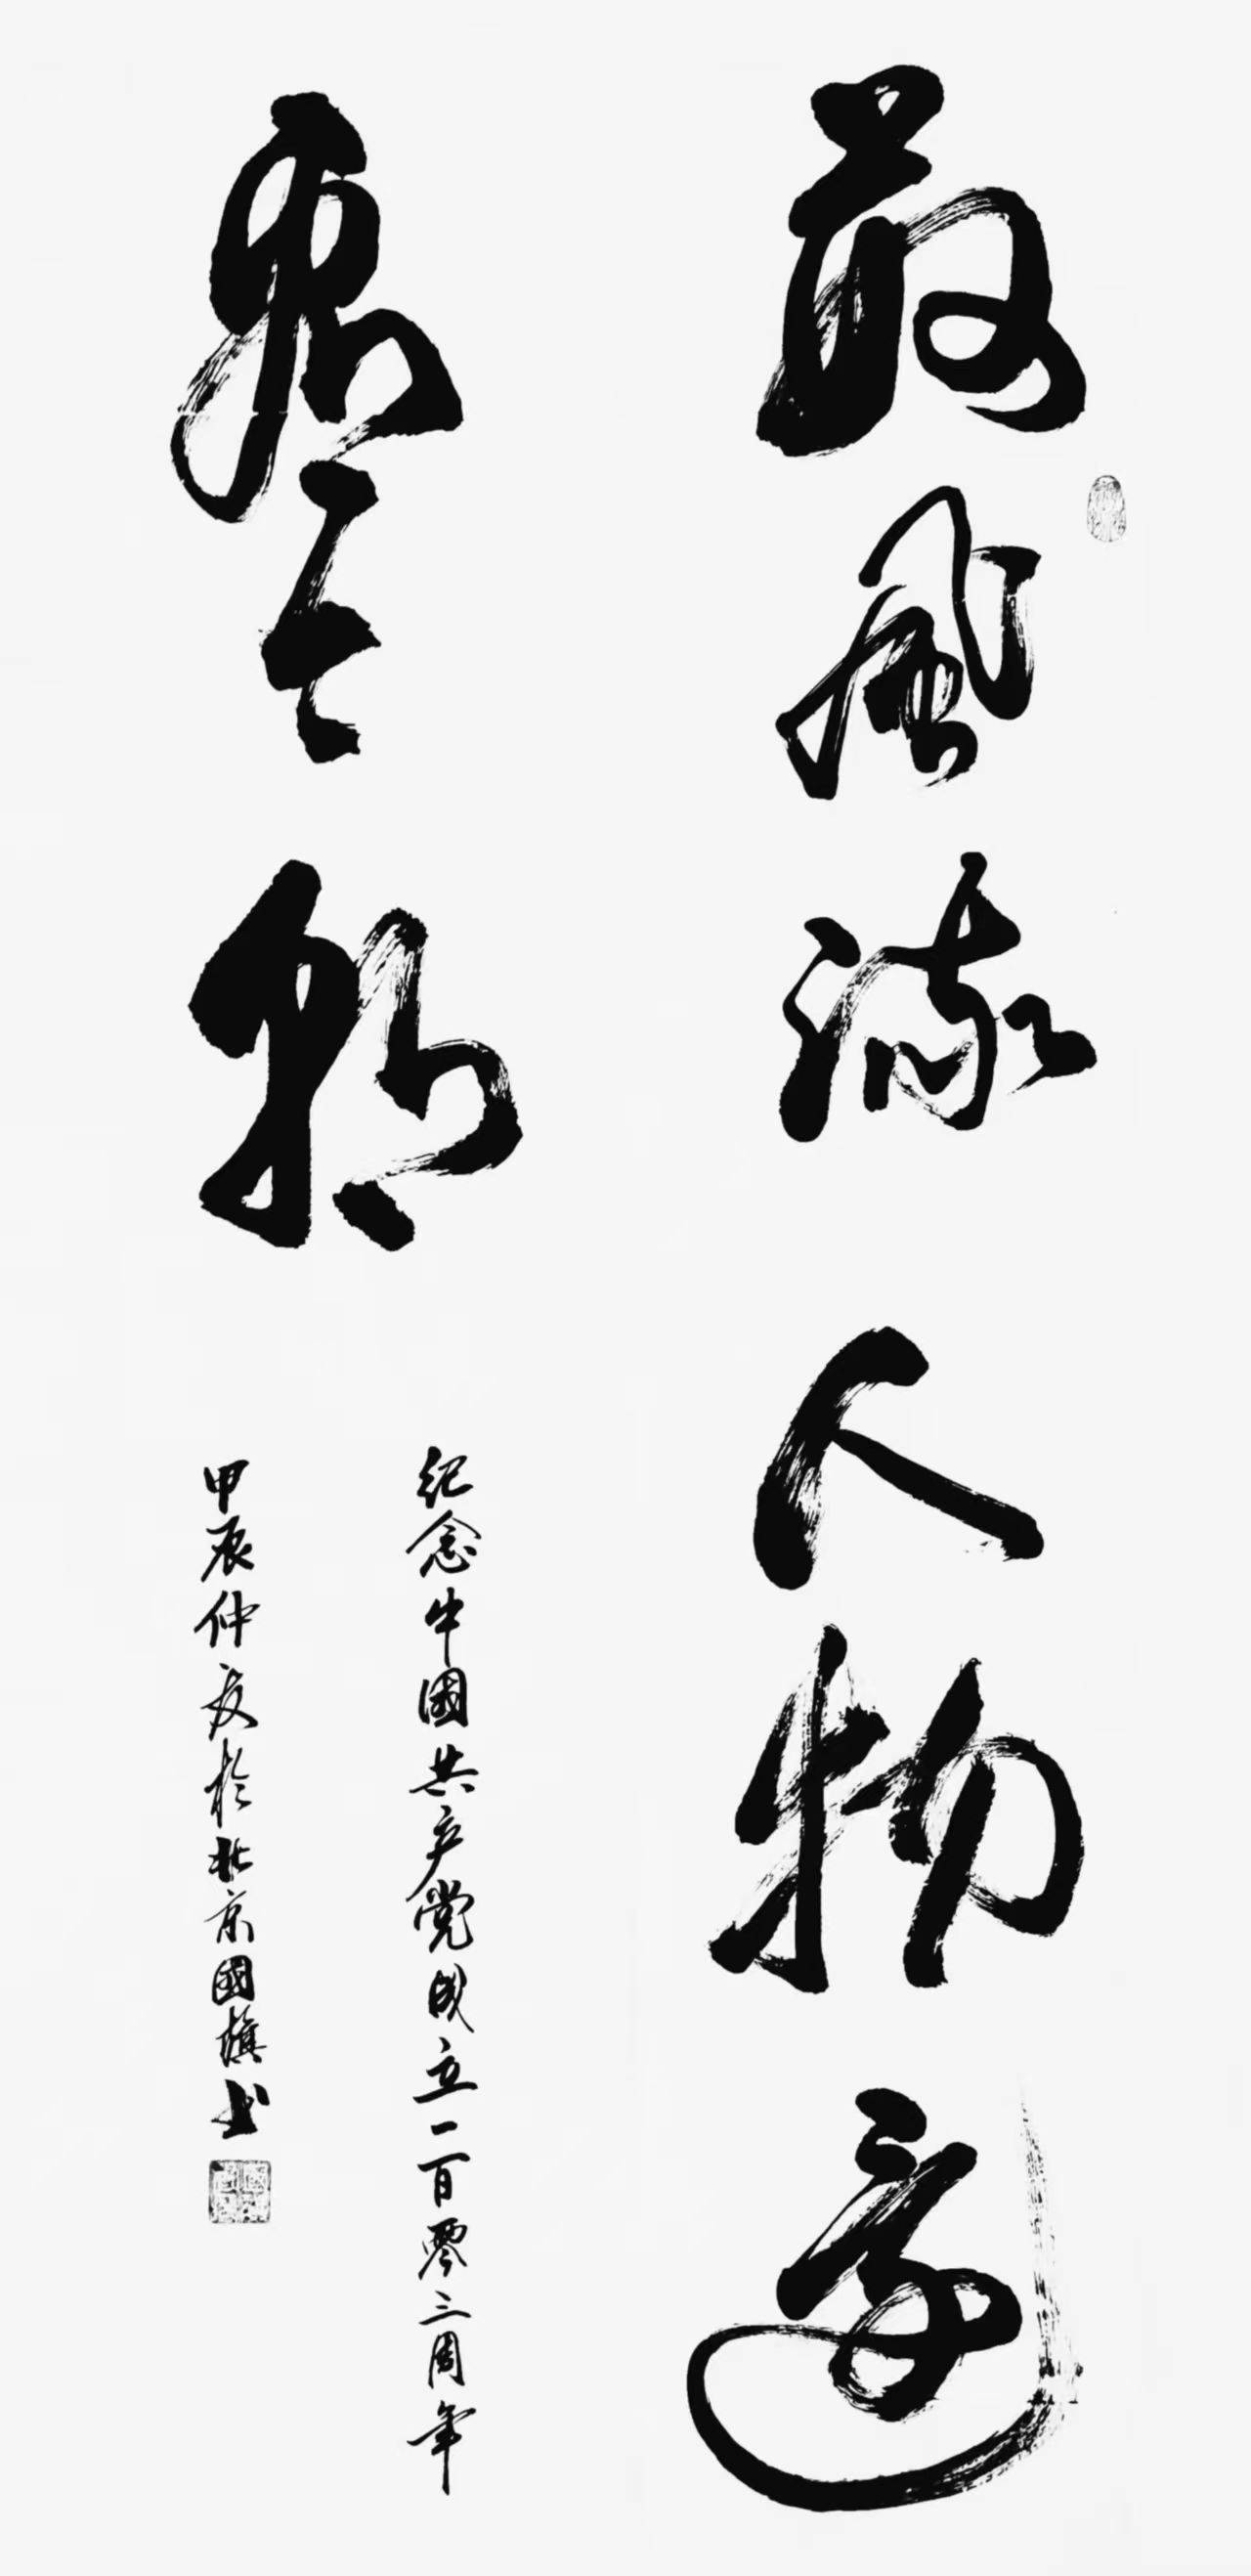 數風流人物還
看今朝
纪念中國共产党成立一百零三周年
甲辰仲夏於北京國旗书